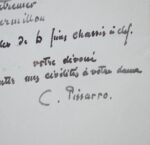 vermillon
de 6 fins chassis à clef.
votre dévoué
mes civilités à votre dame
C. Pissarro.